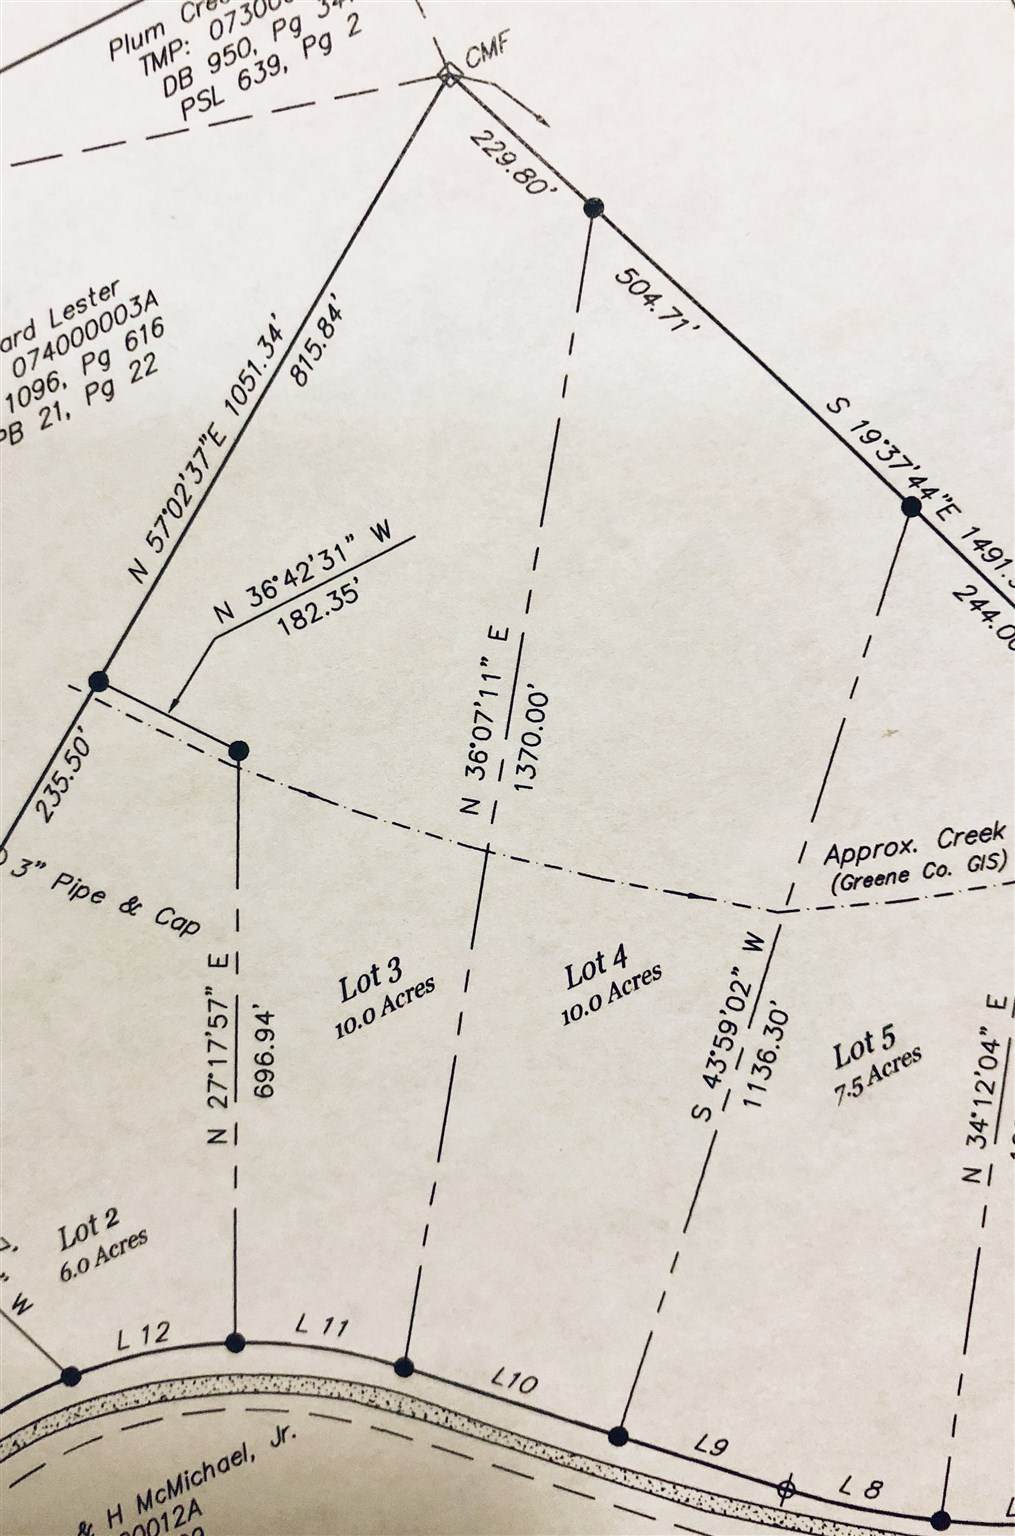 Plum
TMP:
DB 950, Pg
PSL 639, Pg 2
CMF
229.80'
504.71'
S 19°37'44"E
244.
N 57°02'37"E 1051.34'
815.84'
Lester
074000003A
1096, Pg 616
PB 21, Pg 22
N 36°42'31" W
182.35'
235.50'
3" Pipe & Cap
N 36°07'11" E
1370.00'
Approx. Creek
(Greene Co. GIS)
Lot 3
10.0 Acres
Lot 4
10.0 Acres
S 43°59'02" W
1136.30'
Lot 5
7.5 Acres
N 34°12'04" E
N 27°17'57" E
696.94'
Lot 2
6.0 Acres
W
L 12
L 11
L10
L9
L 8
L
& H McMichael, Jr.